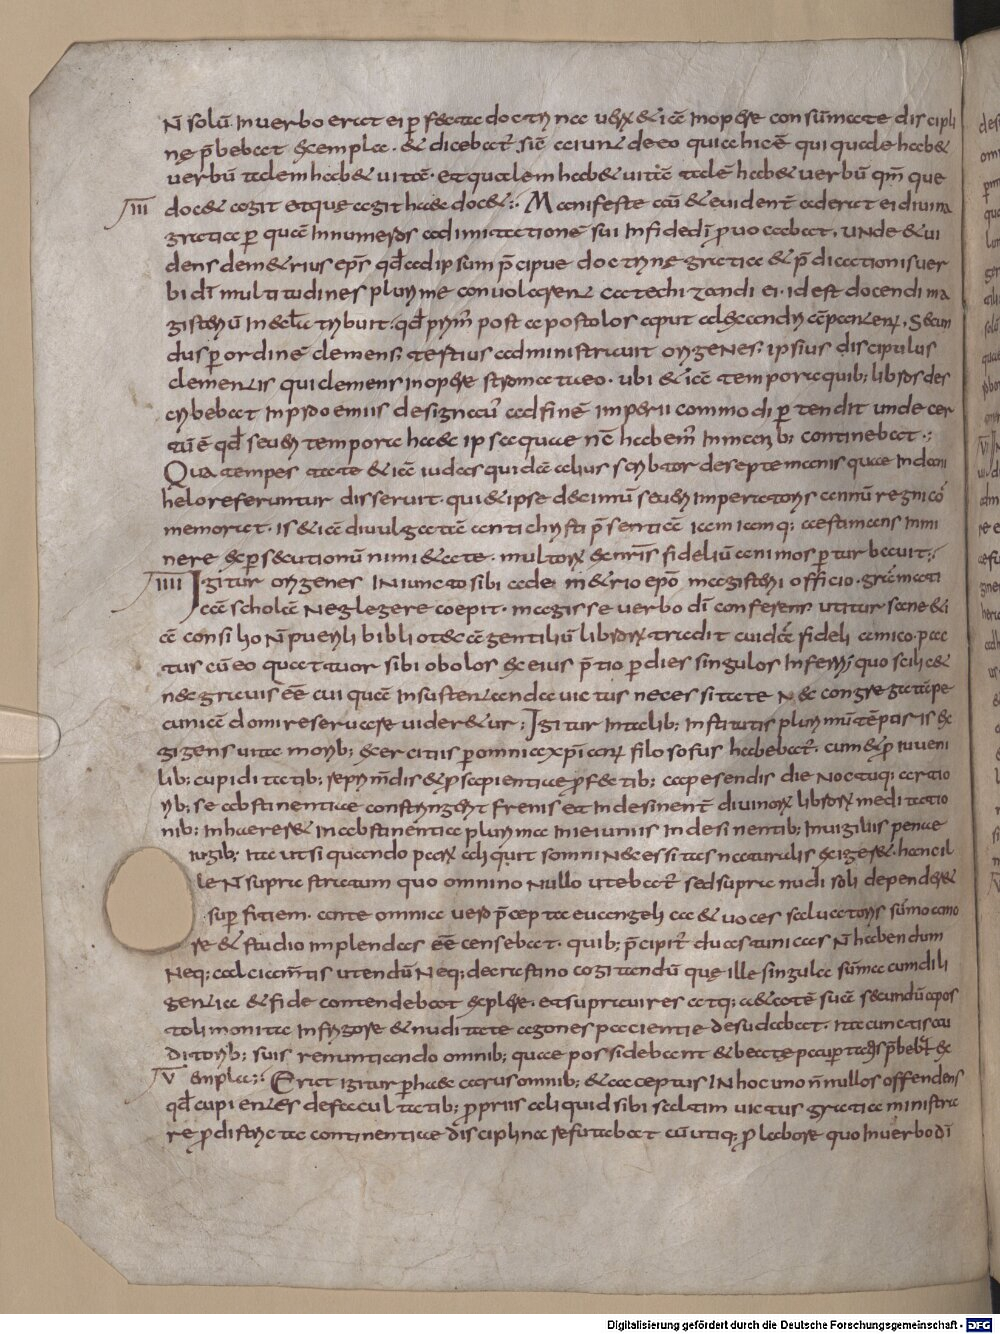 N̄ solū In uerbo erat ei perfectae doctrinae uerū & iā In opere consummate discipli
nę p̄bebat exempla · & dicebat᷑ sic̄ aiunt de eo quia hic ē qui quale hab&
uerbū talem hab& uitā · et qualem hab& uitā talē hab& uerbū qm̄ que
III doc& agit etquę agit haec doc& ;· Manifeste cū & euident̄ aderat ei diuina
gratia per quam Innumeros ad imitationē sui In fide dī prouocabat · unde & ui
dens dem&rius ep̄s qd̄ ad ipsum p̄cipue doctrinę gratia & p̄dicationis uer
bi dī multitudines plurime conuolarent catechizandi ei · id est docendi ma
gisteriū In eccl̄a tribuit · qd̄ prim̄ post apostolos aput alexandriā pantenꝰ · Secun
dus per ordinē clemens testius administrauit origenes ipsius discipulus
clementis qui clemens In opere stromateo · ubi & iā tempora quib; libros der
cribebat In proemiis designat᷑ ad finē imperii commodi pertendit unde cer
tū ē qd̄ seueri tempora haec ipsa quae nc̄ habem̄ In manib; continebat ·;
Qua tempestate & iā iudas quidā alius scribtor de septemanis quae In dani
helo referuntur disseruit · qui & ipse decimū seueri Imperatoris annū regni cō
memorat · is & iā diuulgatā antichristi p̄sentiā iam iamq; aestimans Immi
nere & persecutionū nimi&ate · multorū & nr̄is fideliū animos perturbauit ;
IIII Igitur origenes Iniuncto sibi a dem&rio ep̄o magisterii officio · grāmati
cā scholā Neglegere coepit · magis se uerbo dī conferens utitur sane & i
ā consilio N̄ puerili bibliotecā gentiliū librorū tradit cuidā fideli amico · pac
tus cū eo quattuor sibi obolos ex eius p̄tio per dies singulos Inferri; quo scilic&
nec grauis eē cui quam In sustentanda uictus necessitate Nec congregatā pe
cuniā domi reseruare uider&ur ; Igitur In talib; Institutis plurimū tēptatis ex
gigens uitae morib; exercitiis per omnia xp̄ianū filosofus habebat᷑ · cum & p̄ iuueni
lib; cupiditatib; repmēdis & p̄ sapientiae perfectib; capesendis die Noctuq; certio
rib; se abstinentiae constringeret frenis et Indesinent̄ diuinorū librorū meditatio
nib; Inhaereret In abstinentia plurima Ieiuniis Indesinentib; Inuigiliis pene
iugib; Ita ut si quando parū aliquit somni Necessitas naturalis exiger& · hanc il
le N̄ supra stratum quo omnino Nullo utebat᷑ sed supra nudi soli depender&
superfitiem · ante omnia uero p̄cepta euangelica & uoces saluatoris sūmo amo
re & studio implendas eē censebat · quib; p̄cipit᷑ duas tunicas N̄ habendum
Neq; calciamentis utendū Neq; de crastino cogitandū quę ille singula sūma cum dili
gentia & fide contendebat explere · et supra uires atq; aetatē suā secundū apos
toli monita In frigore & nuditate agones paciencie desudabat · Ita cunctis au
ditorib; suis renuntiando omnib; quae possidebant & beatae paupertatis p̄bebat ex
V empla; · Erat igitur per haec carus omnib; & acceptus In hoc uno n̄ nullos offendens
qd̄ cupientes de facultatib; propriis aliquid sibi saltim uictus gratia ministra
re p̄ districtae continentiae disciplina refutabat cū utiq; p̄ labore quo In uerbo dī
Digitalisierung gefördert durch die Deutsche Forschungsgemeinschaft - DFG